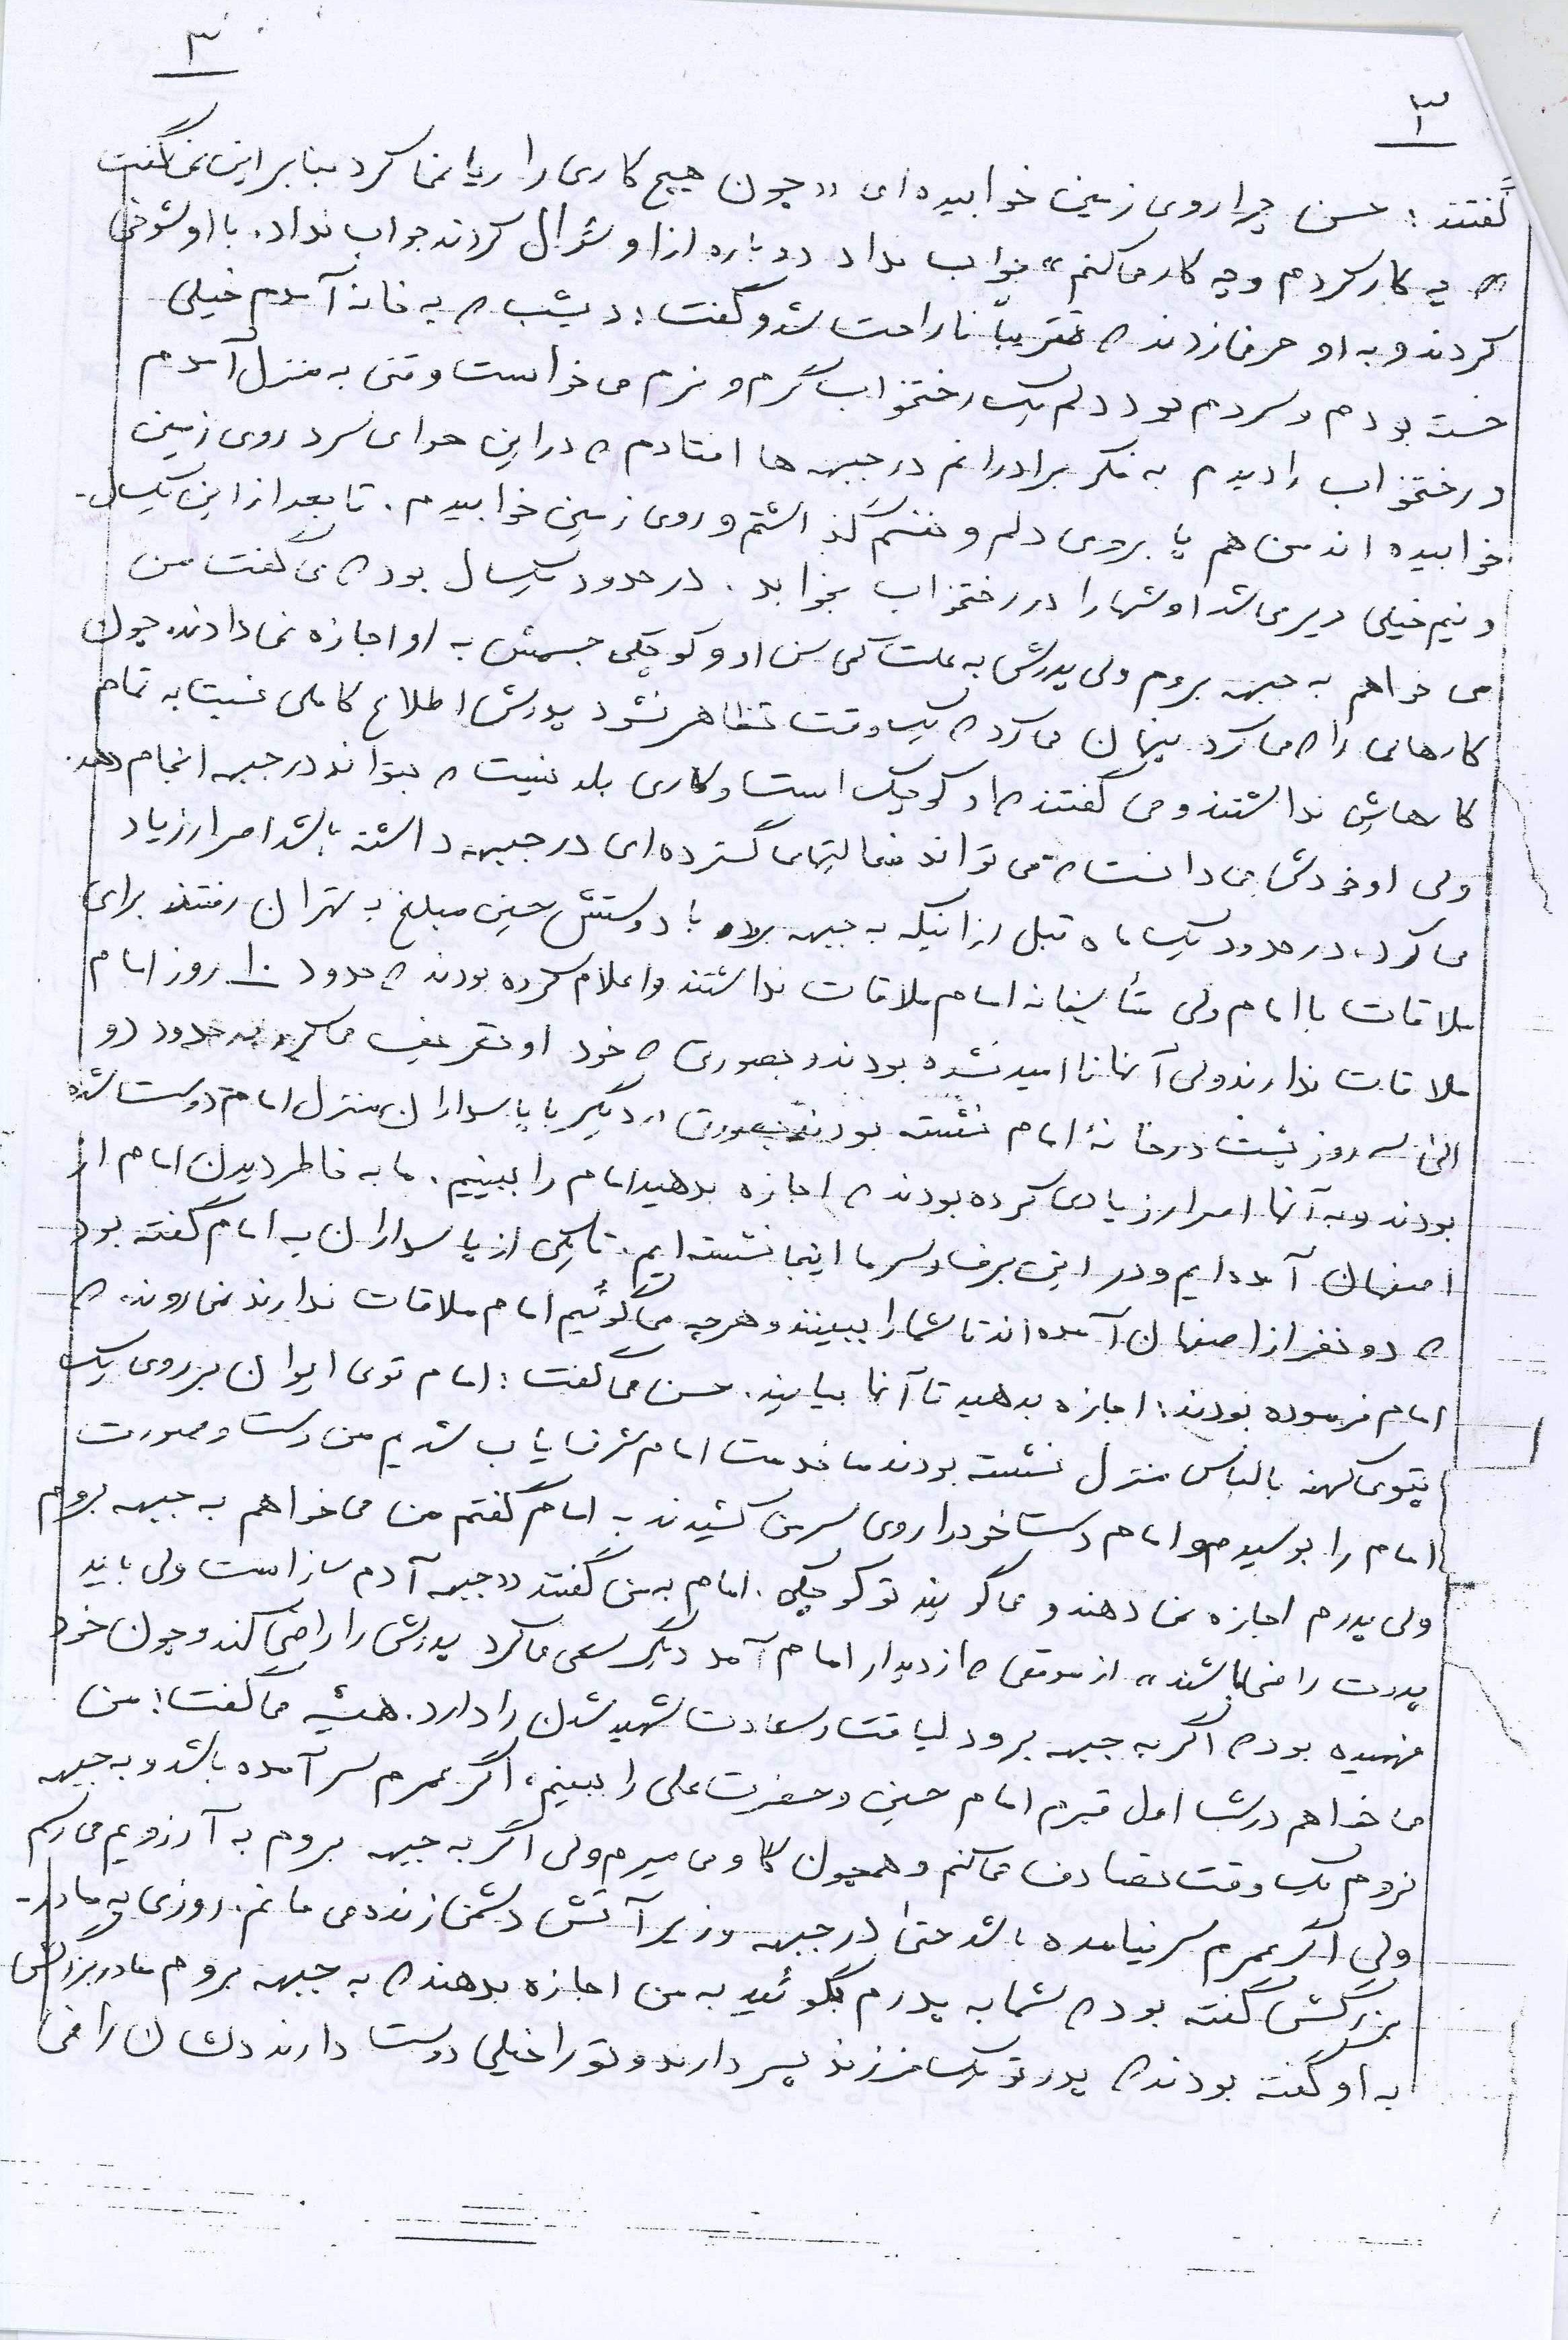 ۳
۳
گفتند : حسن چرا روی زمین خوابیده‌ای «چون هیچ کاری را ریا نمی کرد بنابراین نمی گفت
که چه کار کردم و چه کار می کنم» جواب نداد دوباره از او سئوال کردند جواب نداد. با او شوخی
کردند و به او حرف زدند که تقریباً ناراحت شد و گفت : دیشب که به خانه آمدم خیلی
خسته بودم و سردم بود دلم یک رختخواب گرم و نرم می خواست وقتی به منزل آمدم
و رختخواب را دیدم به فکر برادرانم در جبهه ها افتادم که در این هوای سرد روی زمین
خوابیده اند من هم پا بروی دلم و نفسم گذاشتم و روی زمین خوابیدم . تا بعد از این یکسال-
و نیم خیلی دیر می شد او شبها را در رختخواب بخوابد . در حدود یکسال بود که می گفت من
می خواهم به جبهه بروم ولی پدرش به علت کمی سن او و کوچکی جسمش به او اجازه نمی دادند. چون
کارهایی را که می کرد پنهان می کرد که یک وقت تظاهر نشود پدرش اطلاع کاملی نسبت به تمام
کارهایش نداشتند و می گفتند که او کوچک است و کاری بلد نیست که بتواند در جبهه انجام دهد.
ولی او خودش می دانست که می تواند فعالیتهای گسترده ای در جبهه داشته باشد اصرار زیاد
می کرد، در حدود یک ماه قبل از اینکه به جبهه برود با دوستش حسین مبلغ به تهران رفتند برای
ملاقات با امام ولی متأسفانه امام ملاقات نداشتند و اعلام کرده بودند که حدود ۱۰ روز امام
ملاقات ندارند ولی آنها ناامید نشده بودند و بصوری که خود او تعریف می کرد به حدود دو
الی سه روز پشت درخانۀ امام نشسته بودند بصورت دیگر با پاسداران منزل امام دوست شده
بودند و به آنها اصرار زیادی کرده بودند که اجازه بدهید امام را ببینیم . ما به خاطر دیدن امام از
اصفهان آمده ایم و در این برف و سرما اینجا نشسته ایم . تا یکی از پاسداران به امام گفته بود
که دو نفر از اصفهان آمده اند تا شما را ببینند و هرچه می گوئیم امام ملاقات ندارند نمی روند. که
امام فرموده بودند : اجازه بدهید تا آنها بیایند . حسن می گفت : امام توی ایوان بر روی یک
پتوی کهنه با لباس منزل نشسته بودند ما خدمت امام شرفیاب شدیم من دست و صورت
امام را بوسیدم و امام دست خود را روی سر من کشیدند به امام گفتم من می خواهم به جبهه بروم
ولی پدرم اجازه نمی دهند و می گویند تو کوچکی . امام به من گفتند «جبهه آدم ساز است ولی باید
پدرت راضی باشند» از موقعی که از دیدار امام آمد دیگر سعی می کرد پدرش را راضی کند و چون خود
فهمیده بود که اگر به جبهه برود لیاقت و سعادت شهید شدن را دارد. همیشه می گفت : من
می خواهم در شب اول قبرم امام حسین و حضرت علی را ببینم ، اگر عمرم سر آمده باشد و به جبهه
نروم یک وقت تصادف می کنم و همچون گاو می میرم ولی اگر به جبهه بروم به آرزویم می رسم
ولی اگر عمرم سر نیامده باشد حتی در جبهه و زیر آتش دشمن زنده می مانم . روزی به مادر-
بزرگش گفته بود که شما به پدرم بگوئید به من اجازه بدهند که به جبهه بروم مادربزرگش
به او گفته بودند که پدر تو یک فرزند پسر دارند و تو را خیلی دوست دارند دلشان راضی